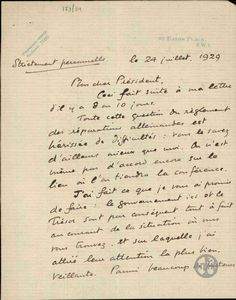 173/29
Strictement personnelle
le 24 juillet 1929
Mon cher Président,
Ceci fait suite à ma lettre
d'il y a 8 ou 10 jours.
Toute cette question du règlement
des réparations allemandes est
hérissée de difficultés : vous le savez
d'ailleurs mieux que moi. On n'est
même pas d'accord encore sur le
lieu où l'on tiendra la conférence.
J'ai fait ce que je vous ai promis
de faire : le gouvernement ici et le
Trésor sont par conséquent tout à fait
au courant de la situation où vous
vous trouvez, et sur laquelle j'ai
attiré leur attention la plus bien-
veillante. Parmi beaucoup